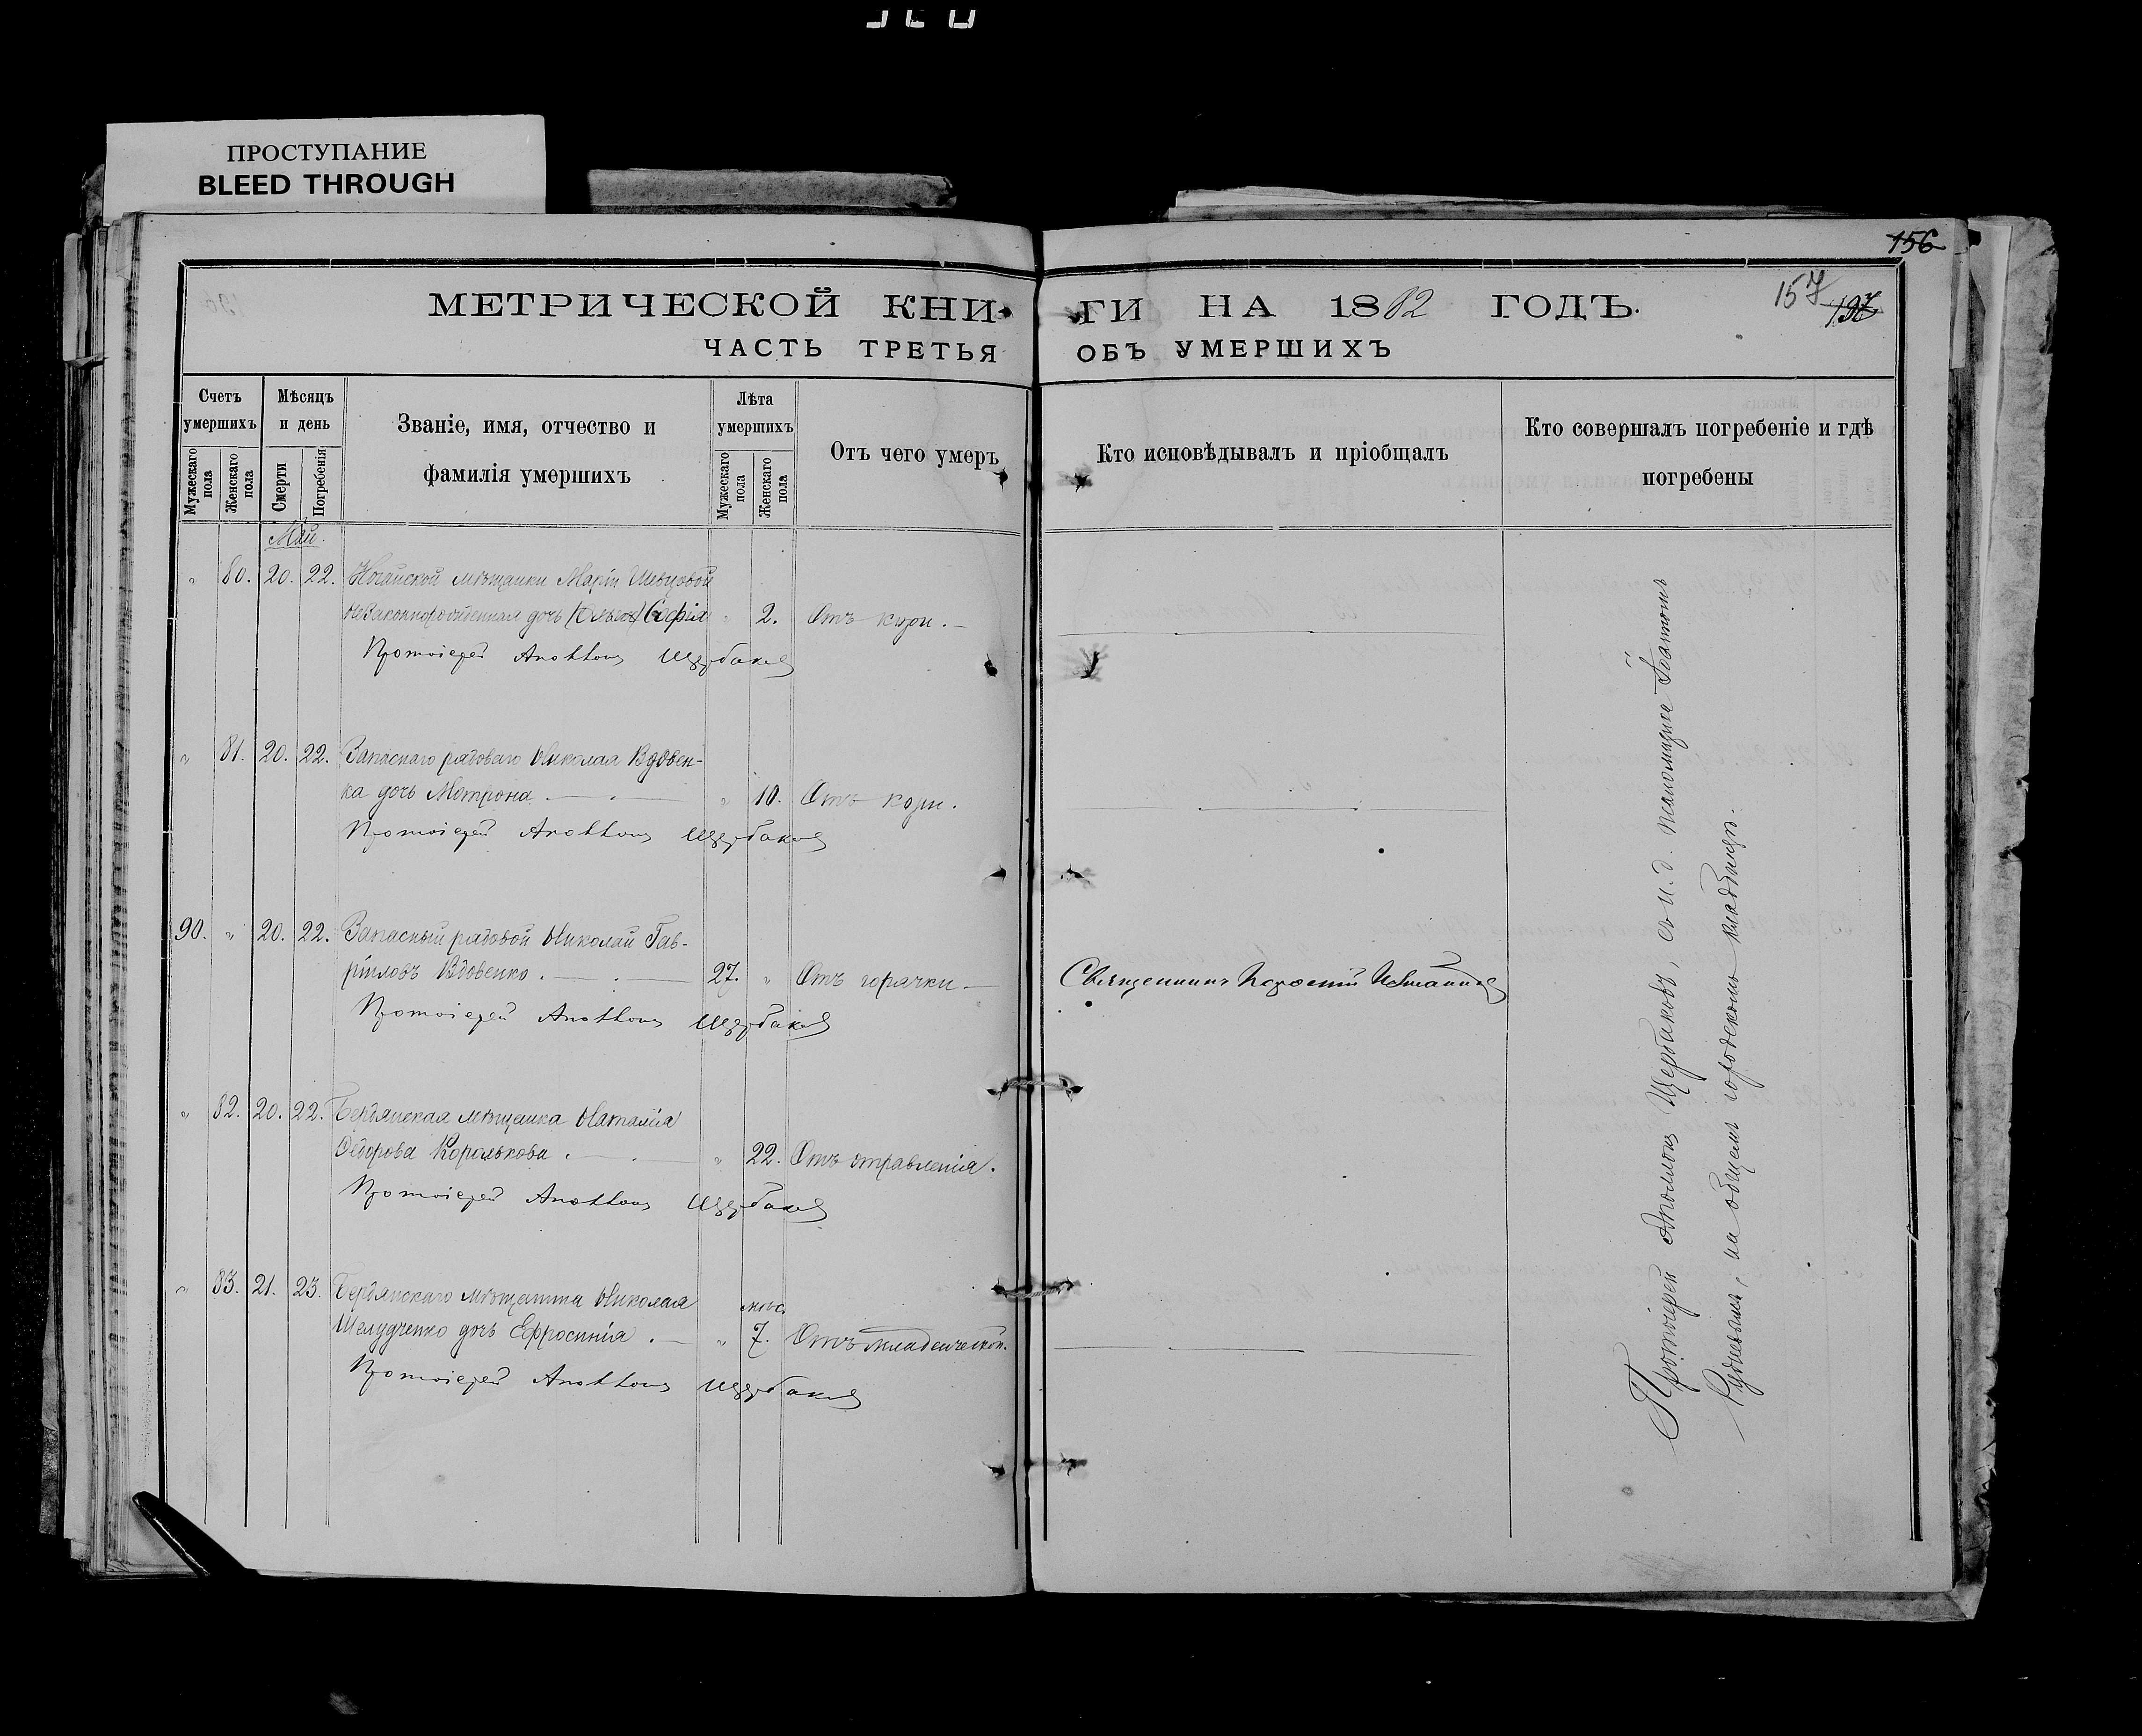 ПРОСТУПАНИЕ
BLEED THROUGH
156
157
МЕТРИЧЕСКОЙ КНИ
ГИ НА 1882 ГОДЪ.
ЧАСТЬ ТРЕТЬЯ
ОБЪ УМЕРШИХЪ
Счетъ умершихъ
Мужескаго пола
Женскаго пола
Мѣсяцъ и день
Смерти
Погребенія
Званіе, имя, отчество и
фамилія умершихъ
Лѣта умершихъ
Мужескаго пола
Женскаго пола
Отъ чего умеръ
Кто исповѣдывалъ и пріобщалъ
Кто совершалъ погребеніе и гдѣ
погребены
Май.
" 80. 20. 22. Ногайской мѣщанки Маріи Шевцовой
незаконнорожденная дочь (Ольга) Софія " 2. Отъ кори.
Протоіерей Аполлонъ Щербаковъ
" 81. 20. 22. Запаснаго рядоваго Николая Вдовен-
ка дочь Мотрона. " 10. Отъ кори.
Протоіерей Аполлонъ Щербаковъ
90. " 20. 22. Запасный рядовой Николай Гав-
ріиловъ Вдовенко. 27. " Отъ горячки. Священникъ
Протоіерей Аполлонъ Щербаковъ
" 82. 20. 22. Бердянская мѣщанка Наталія
Ѳедорова Королькова. " 22. Отъ отравленія.
Протоіерей Аполлонъ Щербаковъ
" 83. 21. 23. Бердянскаго мѣщанина Николая мѣс.
Шелудченко дочь Ефросинія. " 7. Отъ младенческой.
Протоіерей Аполлонъ Щербаковъ
Протоіерей Аполлонъ Щербаковъ, съ и. д. псаломщика Іоанномъ
Рудневымъ, на общемъ городскомъ кладбищѣ.